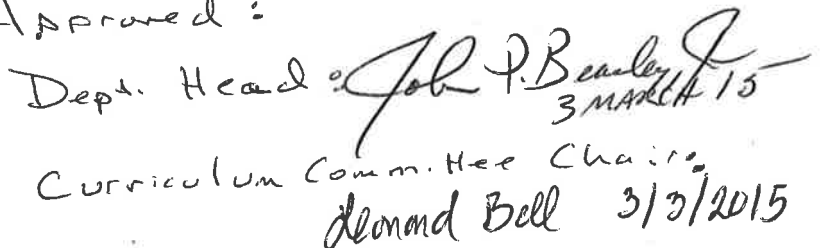 Approved:
Dept. Head: John P. Beasley Jr
3 MARCH 15
Curriculum Committee Chair:
Leonard Bell 3/3/2015